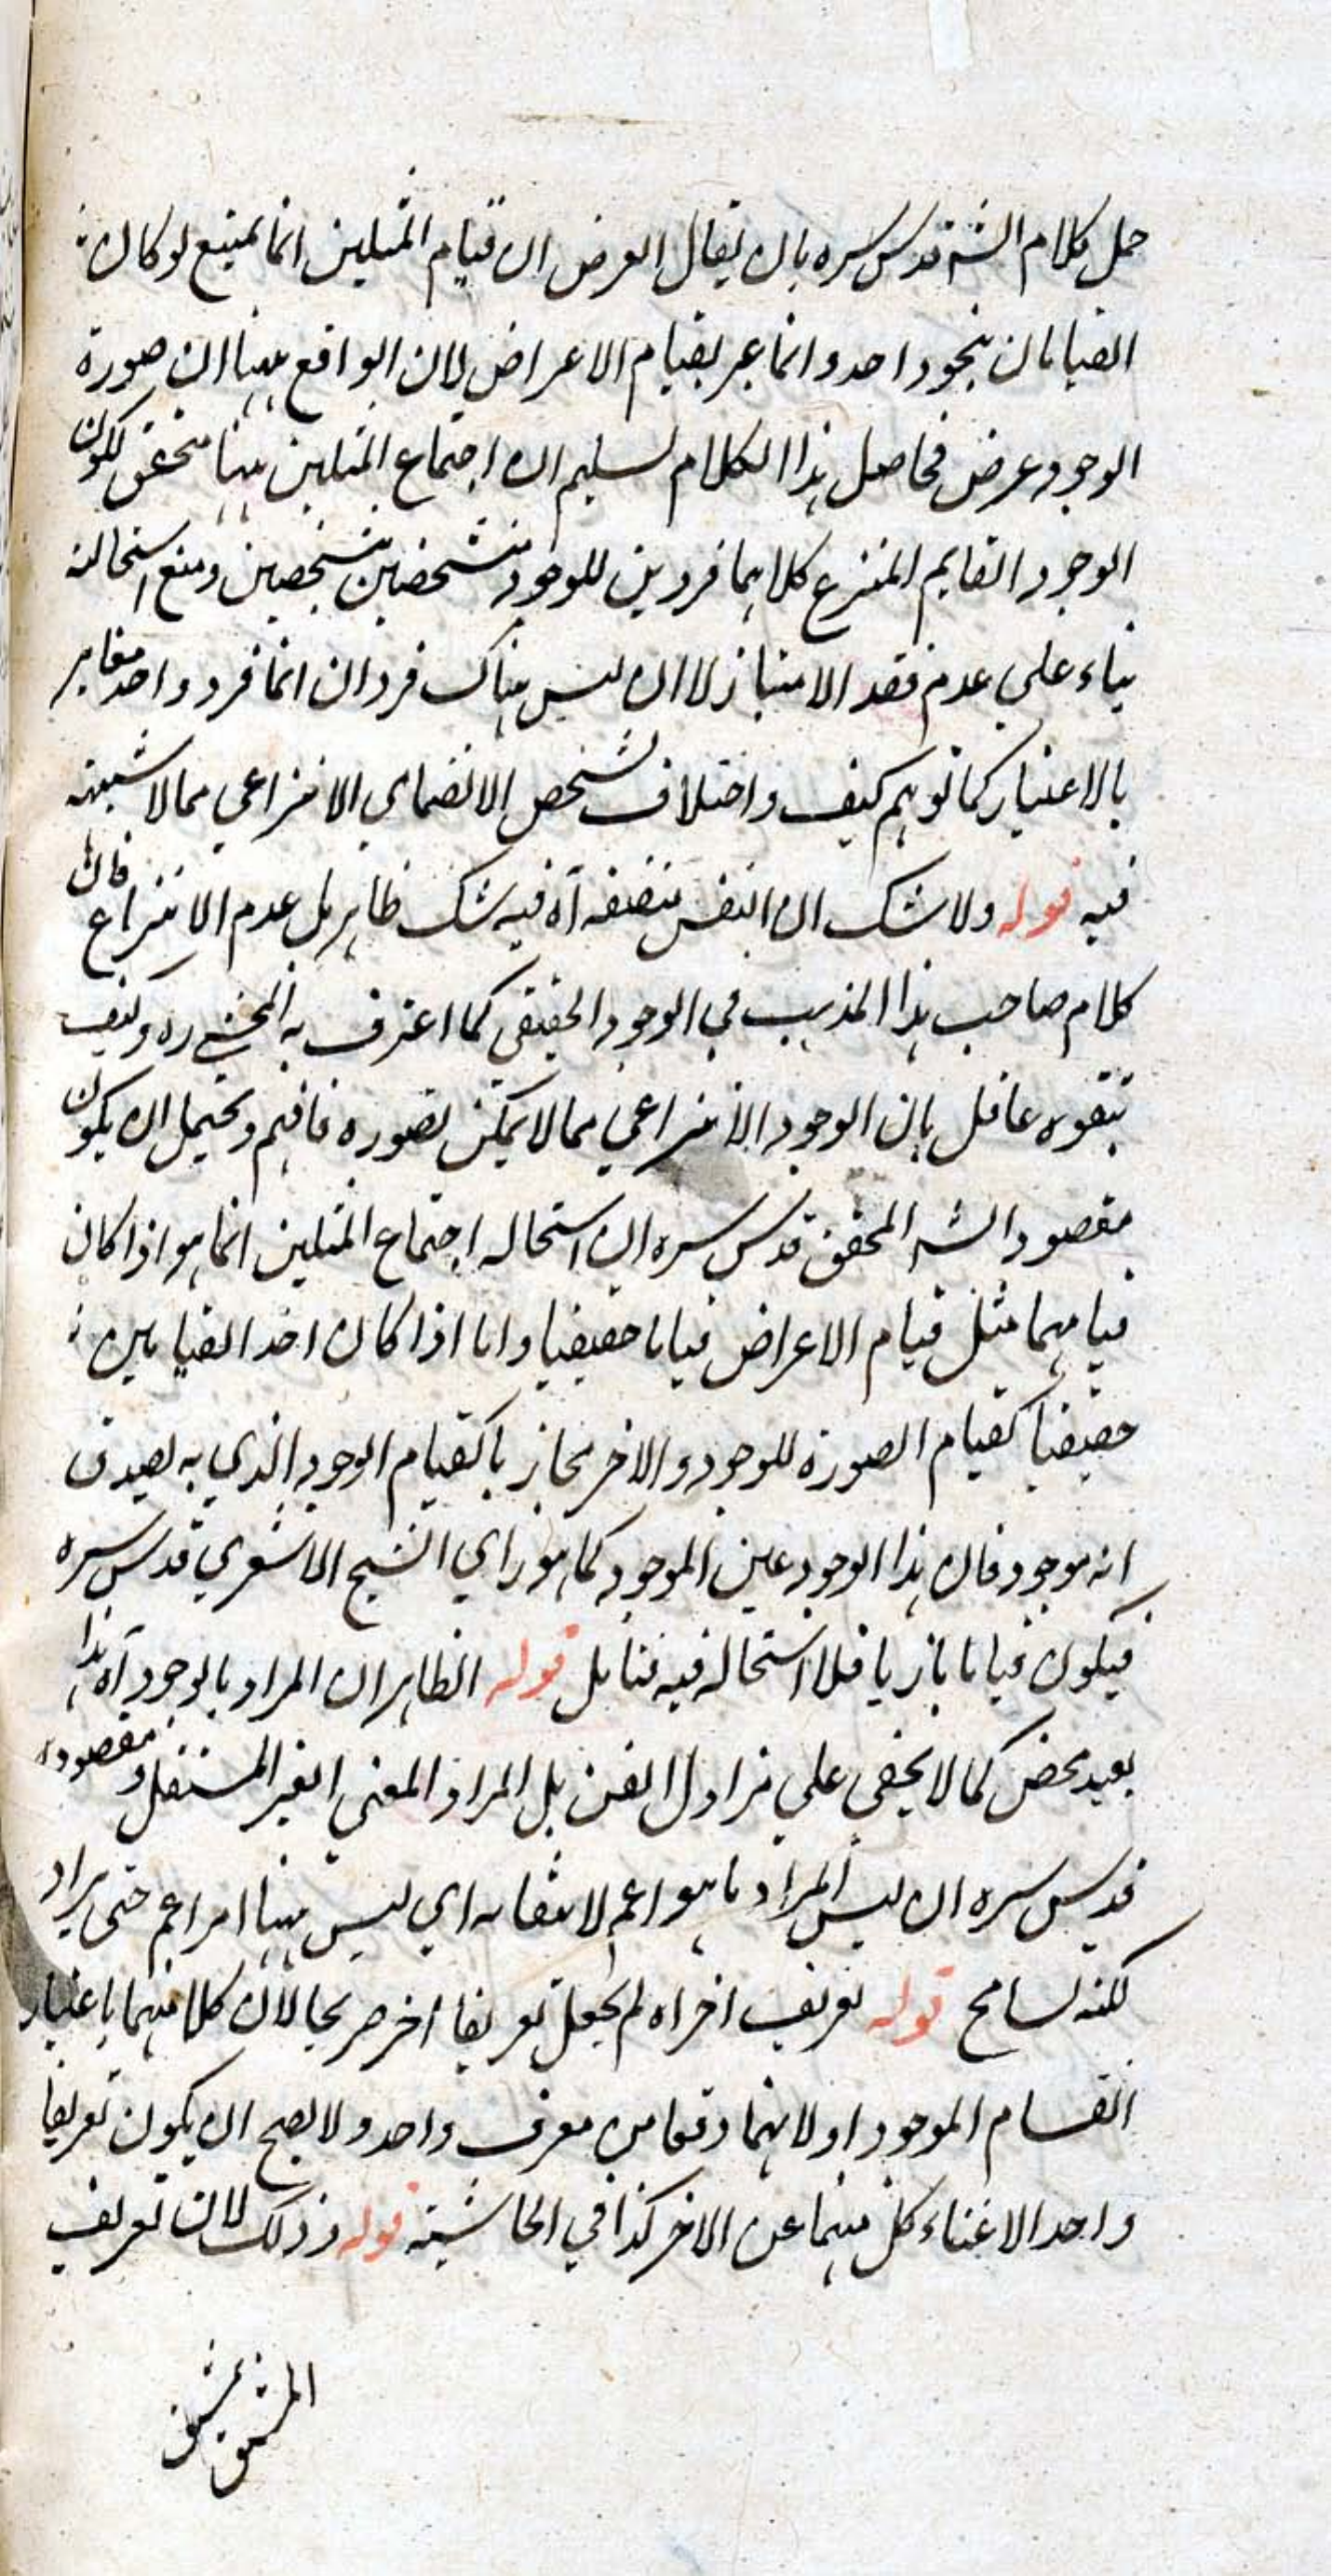 حمل كلام الشه قدس سره بان يقال الغرض ان قيام المثلين انما يمتنع لو كان
القيامان بنحو واحد وانما عبر بقيام الاعراض لان الواقع ههنا ان صورة
الوجود عرض فحاصل هذا الكلام تسليم ان اجتماع المثلين ههنا متحقق لكون
الوجود القايم المنتزع كلاهما فردين للوجود متشخصين بتشخصين ومنع استحالته
بناء على عدم فقد الامتياز لا ان ليس هناك فردان انما فرد واحد مغاير
بالاعتبار كما توهم كيف واختلاف تشخص الانضمامي الانتزاعي مما لا شبهة
فيه قوله ولا شك ان النفس متصفة آه فيه شك ظاهر بل عدم الانتزاع فان
كلام صاحب هذا المذهب في الوجود الحقيقي كما اعترف به المحشي ره وكيف
يتفوه عاقل بان الوجود الانتزاعي مما لا يمكن تصوره فافهم ويحتمل ان يكون
مقصود الشه المحقق قدس سره ان استحالة اجتماع المثلين انما هو اذا كان
قيامهما مثل قيام الاعراض قياما حقيقيا واما اذا كان احد القيامين
حقيقيا كقيام الصورة للوجود والاخر مجازيا كقيام الوجود الذي به يصدق
انه موجود فان هذا الوجود عين الموجود كما هو راي الشيخ الاشعري قدس سره
فيكون قياما مجازيا فلا استحالة فيه فتامل قوله الظاهر ان المراد بالوجود آه هذا
بعيد محض كما لا يخفى على مزاول الفن بل المراد المعنى الغير المستقل ومقصوده
قدس سره ان ليس المراد ما هو اعم لانتفائه اي ليس ههنا امر اعم حتى يراد
لكنه تسامح قوله تعريف اخر اه لم يجعل تعريفا اخر صريحا لان كلا منهما باعتبار
انقسام الموجود او لانهما وقعا من معرف واحد ولا يصح ان يكون تعريفا
واحدا لاغناء كل منهما عن الاخر كذا في الحاشية قوله وذلك لان تعريف